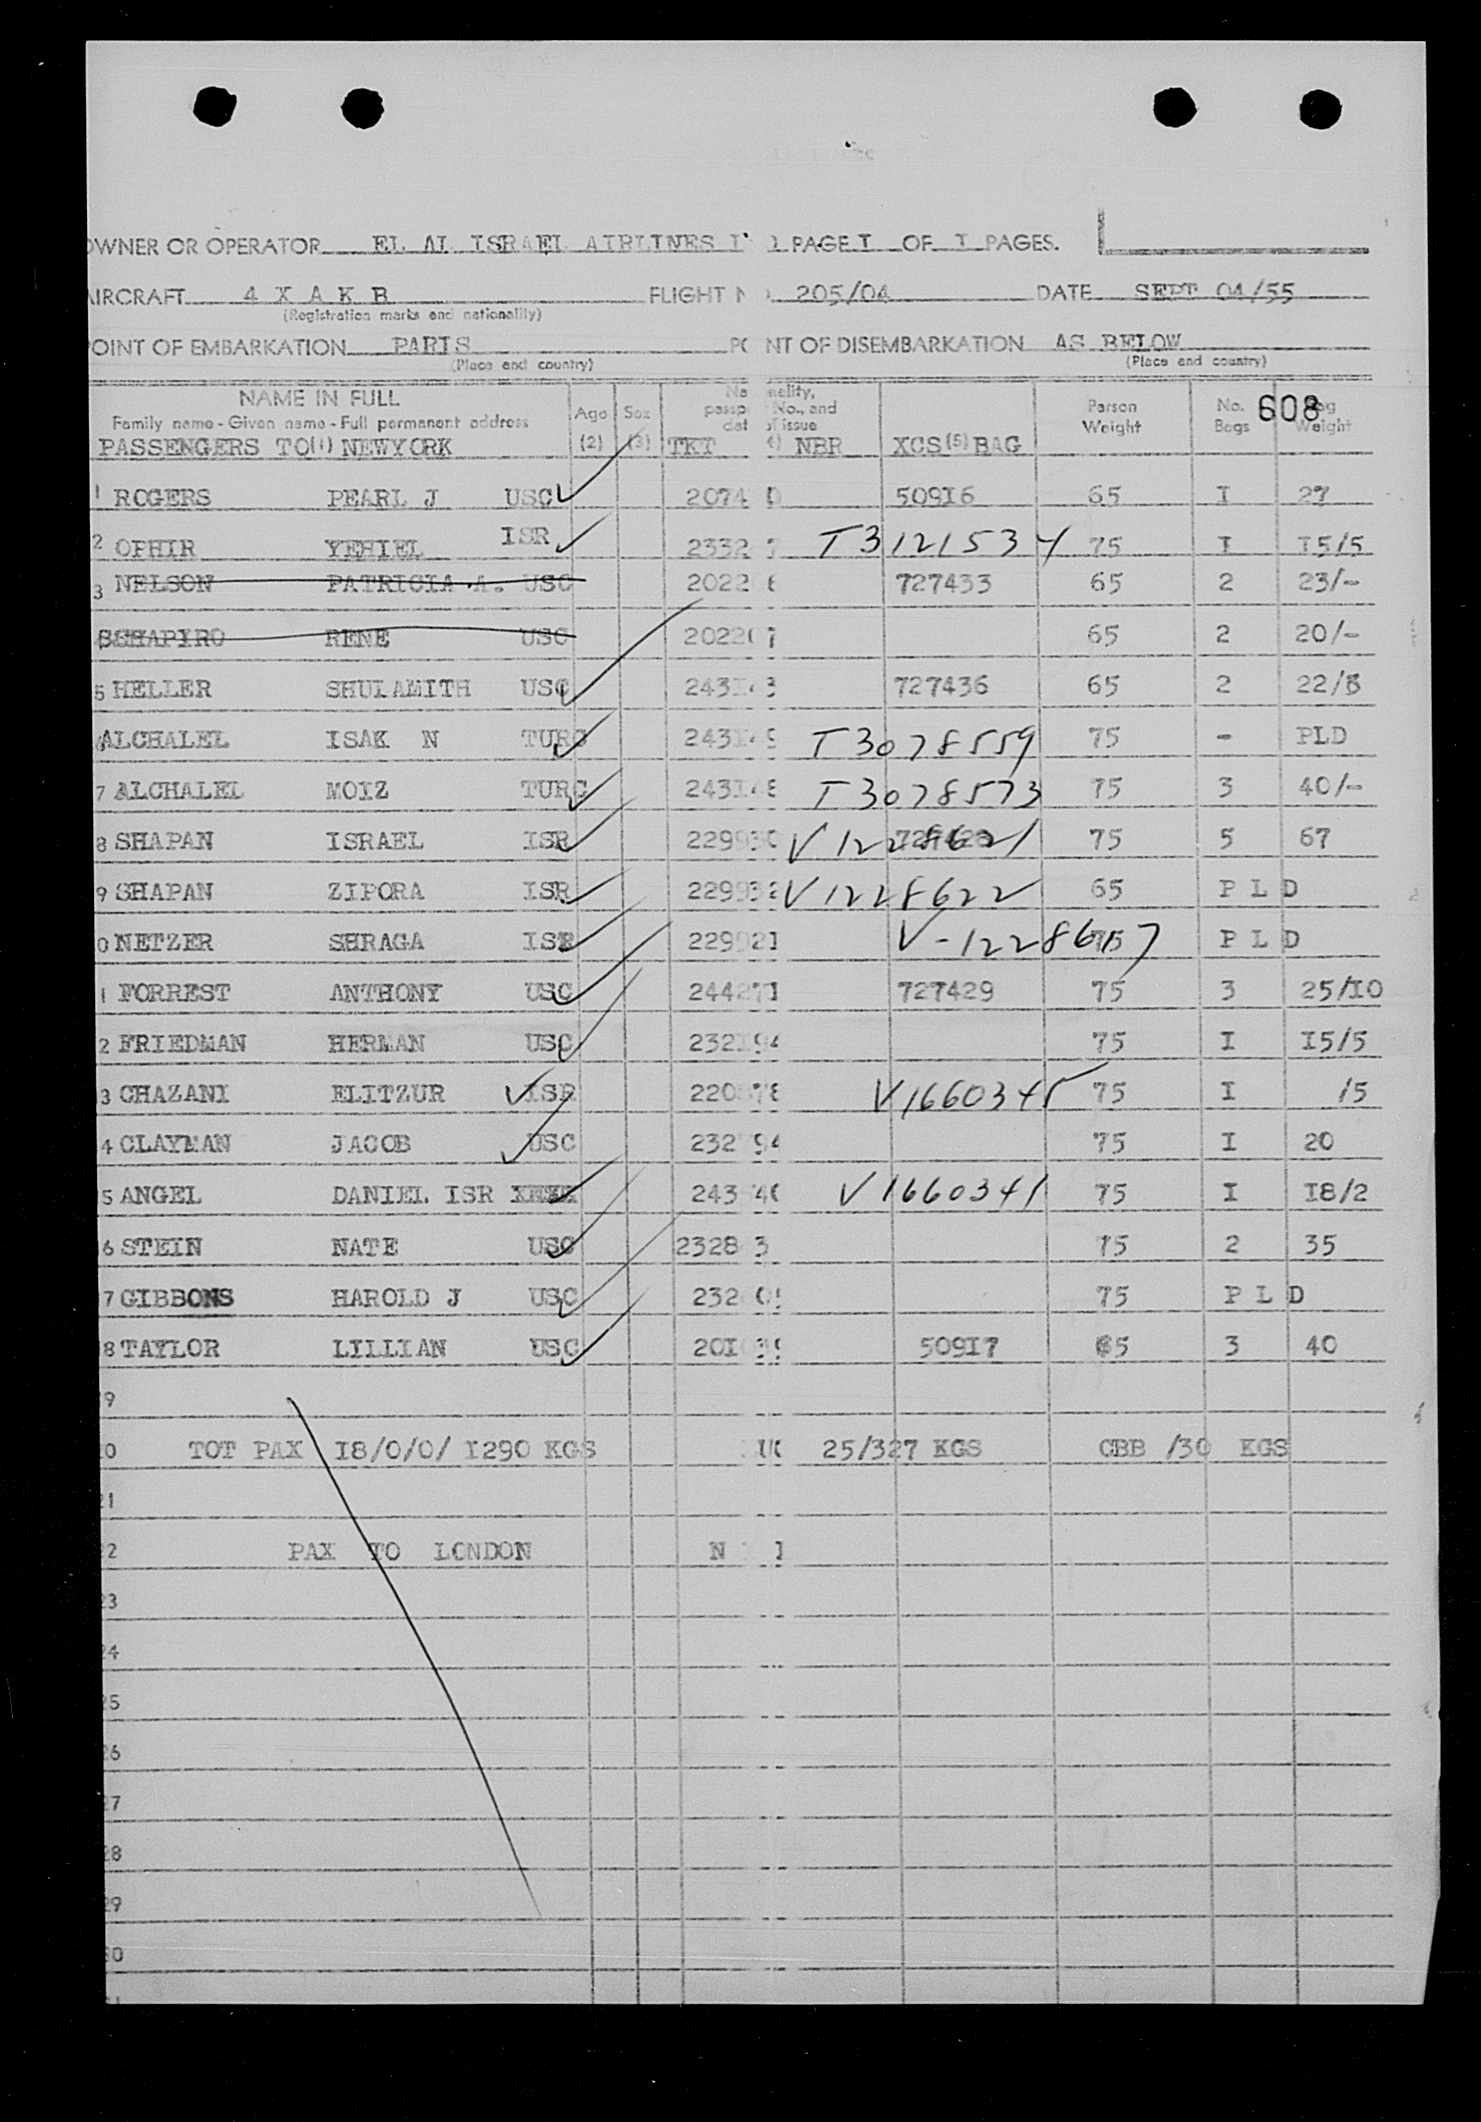 OWNER OR OPERATOR EL AL ISRAEL AIRLINES PAGE I OF I PAGES.
AIRCRAFT 4 X A K B FLIGHT 205/04 DATE SEPT 04/55
(Registration marks and nationality)
POINT OF EMBARKATION PARIS NT OF DISEMBARKATION AS BELOW
(Place and country) (Place and country)
NAME IN FULL Age Sex No., and Person No. 608 Bag
Family name - Given name - Full permanent address of issue Weight Bags Weight
PASSENGERS TO (1) NEWYORK (2) (3) TKT NBR XCS (5) BAG
1 ROGERS PEARL J USC 2074 0 50916 65 I 27
2 OPHIR YEHIEL ISR 2332 7 T3121534 75 I I5/5
3 NELSON PATRICIA A. USC 2022 6 727433 65 2 23/-
SHAPIRO RENE USC 2022 7 65 2 20/-
5 HELLER SHULAMITH USC 243I 3 727436 65 2 22/3
ALCHALEL ISAK N TURC 243I 9 T3078559 75 - PLD
7 ALCHALEL MOIZ TURC 243I 8 T3078573 75 3 40/-
8 SHAPAN ISRAEL ISR 229930 V1228621 75 5 67
9 SHAPAN ZIPORA ISR 229932 V1228622 65 P L D
0 NETZER SHRAGA ISR 22992I V-1228617 75 P L D
1 FORREST ANTHONY USC 24427I 727429 75 3 25/I0
2 FRIEDMAN HERMAN USC 232I94 75 I I5/5
3 CHAZANI ELITZUR ISR 220 78 V1660345 75 I 15
4 CLAYMAN JACOB USC 232 94 75 I 20
5 ANGEL DANIEL ISR 243 40 V1660341 75 I I8/2
6 STEIN NATE USC 2328 3 75 2 35
7 GIBBONS HAROLD J USC 232 0 75 P L D
8 TAYLOR LILLIAN USC 20I 39 509I7 65 3 40
9
0 TOT PAX I8/0/0/ I290 KGS 25/327 KGS CBB /30 KGS
21
2 PAX TO LONDON N I
23
24
25
26
27
28
29
30